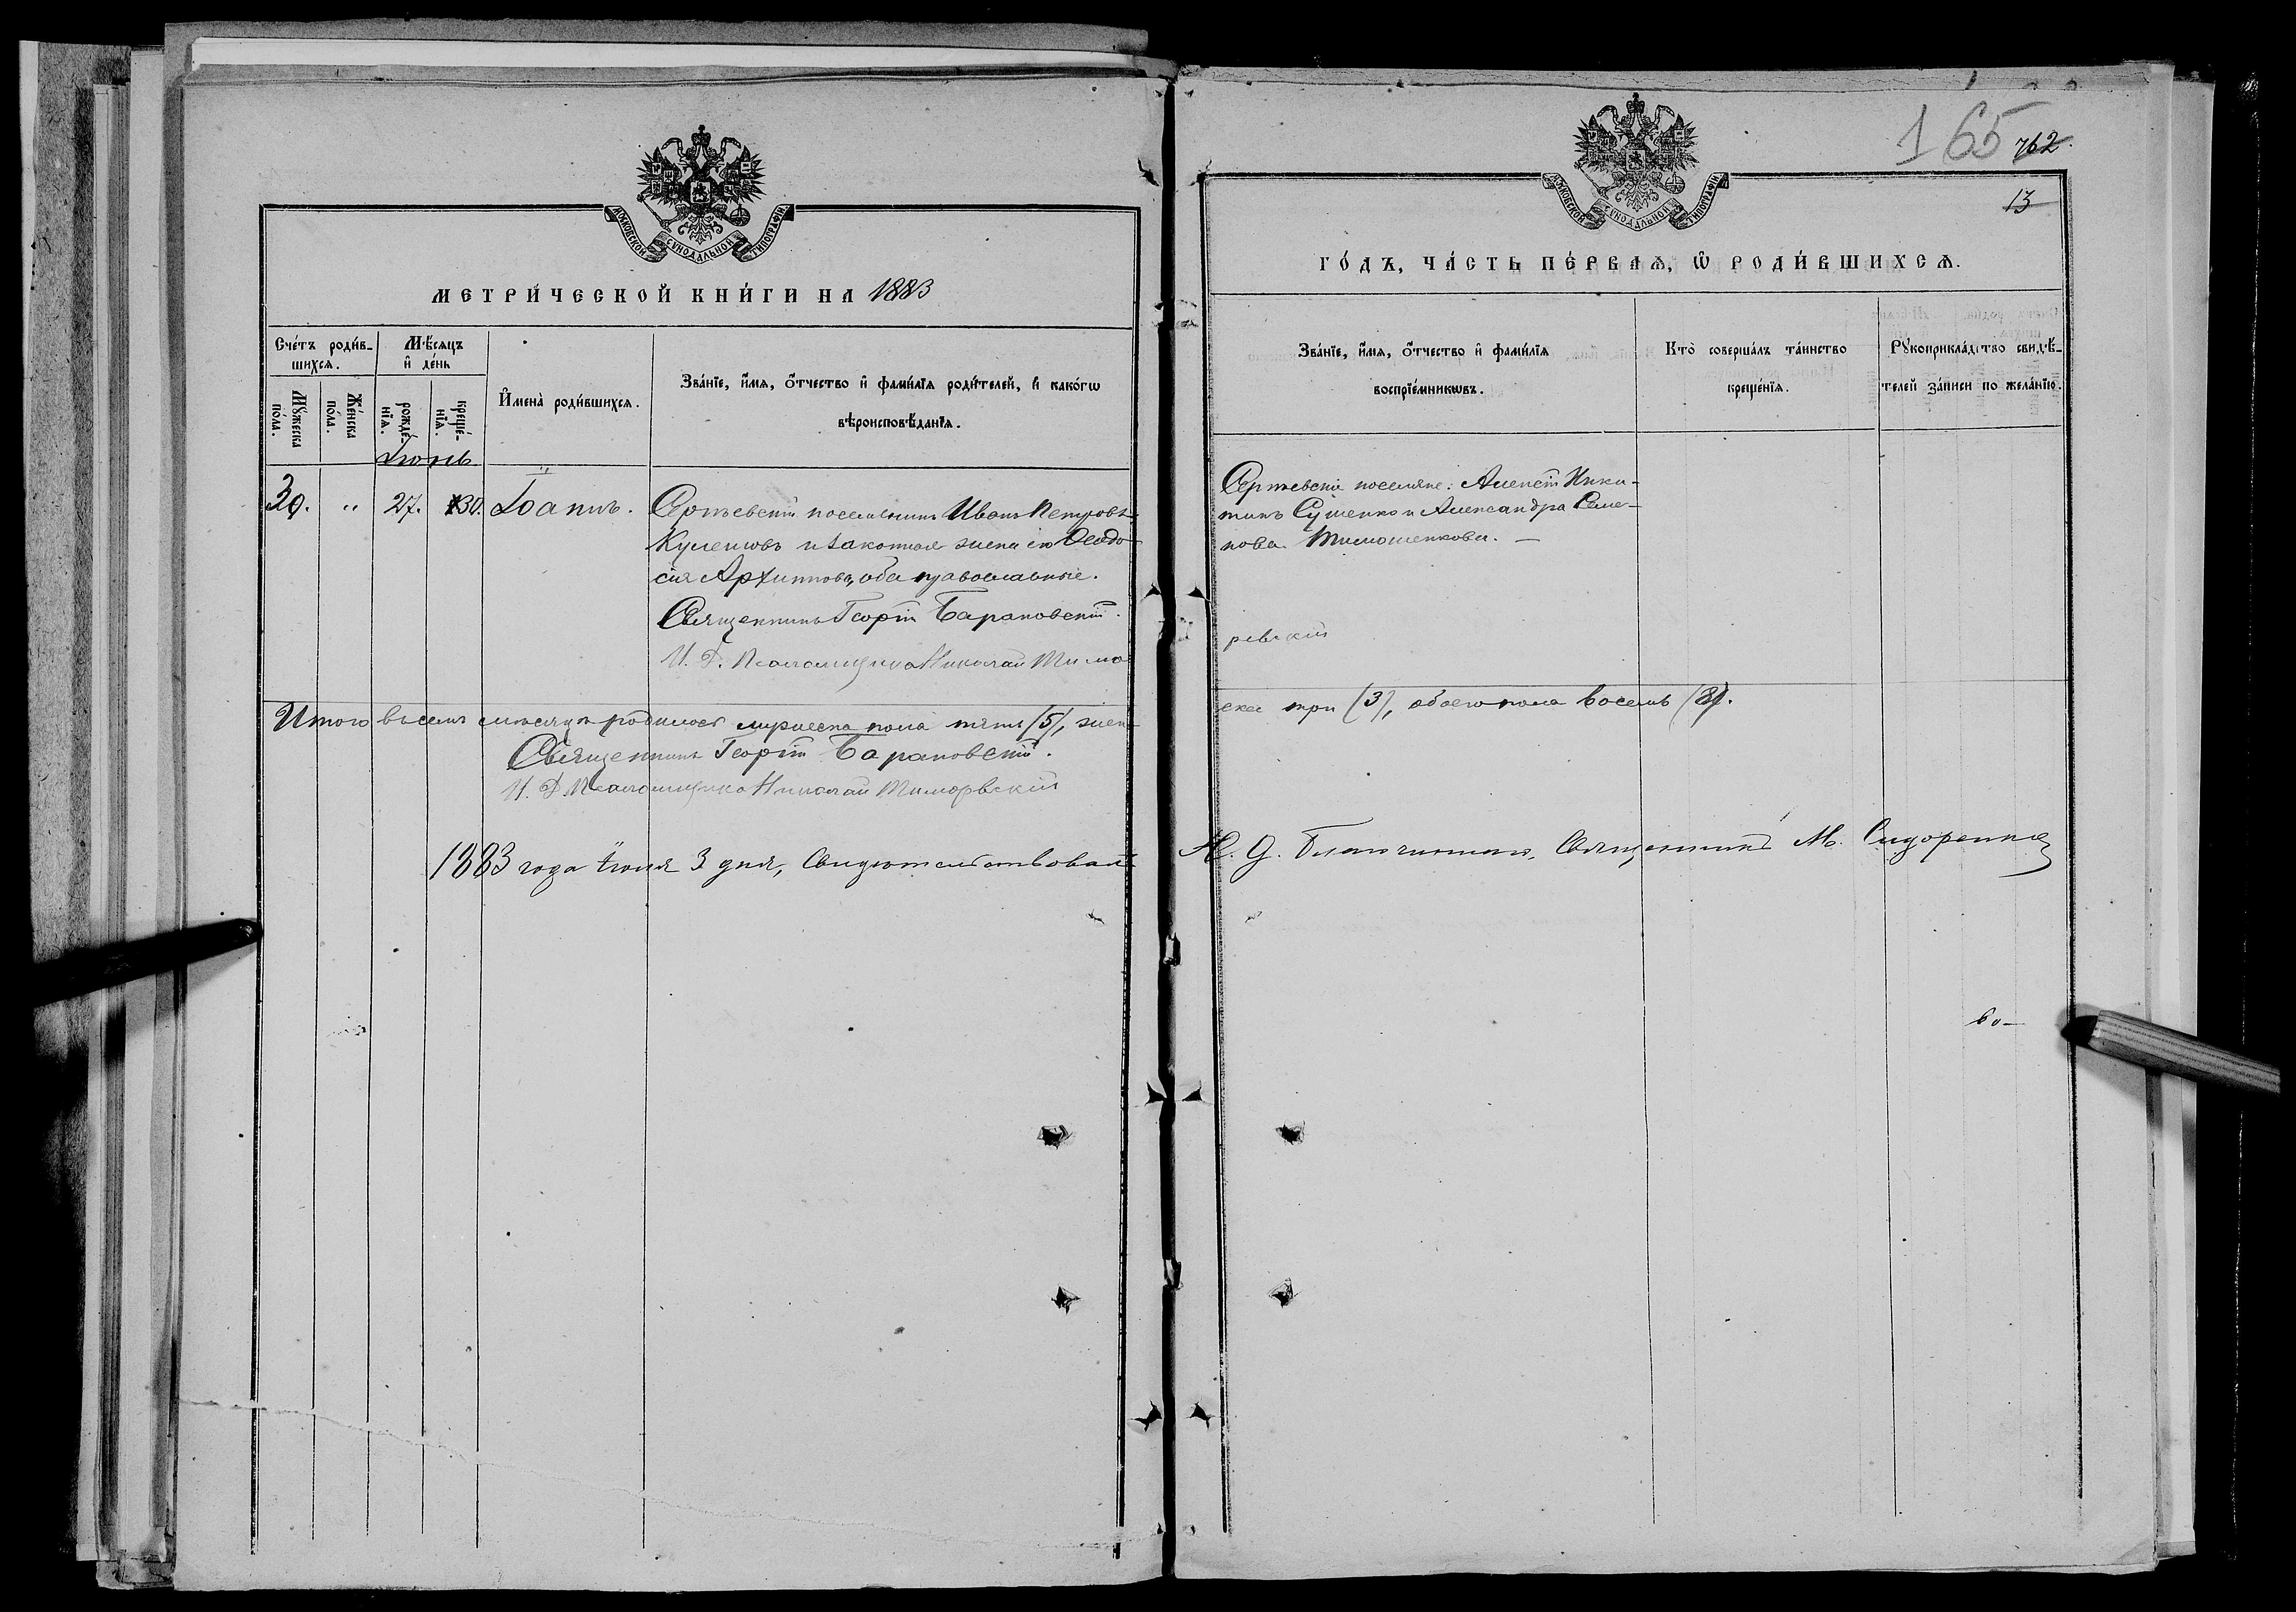 МОСКОВСКОЙ СУНОДАЛЬНОЙ ТИПОГРАФІИ
МЕТРИ́ЧЕСКОЙ КНИ́ГИ НА 1883
Сче́тъ роди́в-
шихсѧ.
Мѣ́сѧцъ
и҆ де́нь
Мꙋ́жеска
по́ла.
Же́нска
по́ла.
рожде́-
нїѧ.
креще́-
нїѧ.
И҆мена̀ роди́вшихсѧ.
Зва́нїе, и҆́мѧ, ѻ҆́тчество и҆ фами́лїѧ роди́телей, и҆ како́гѡ
вѣроисповѣ́данїѧ.
Іюнь
30. " 27. 30. Іоаннъ. поселянинъ Иванъ Петровъ
и законная жена его Ѳеодо-
сія Архиппова, оба православные.
Священникъ Георгій Барановскій.
И. Д. Псаломщика Николай Тимо
Итого въ семъ мѣсяцѣ родилось мужеска пола пять (5), жен-
Священникъ Георгій Барановскій.
И. Д. Псаломщика Николай
1883 года Іюля 3 дня, Свидѣтельствовалъ
165 762
13
МОСКОВСКОЙ СУНОДАЛЬНОЙ ТИПОГРАФІИ
ГО́ДЪ, ЧА́СТЬ ПЕ́РВАѦ, Ѡ҆ РОДИ́ВШИХСѦ.
Зва́нїе, и҆́мѧ, ѻ҆́тчество и҆ фами́лїѧ
воспрїе́мникѡвъ.
Кто̀ соверша́лъ та́инство
креще́нїѧ.
Рꙋкоприкла́дство свидѣ́-
телей за́писи по жела́нїю.
поселяне: Алексѣй Ники-
тинъ Сушенко и Александра Семе-
нова Тимошенкова. —
ревскій
ска три (3), обоего пола восемь (8).
И. Д. Благочиннаго, Священникъ М. Сидоренко